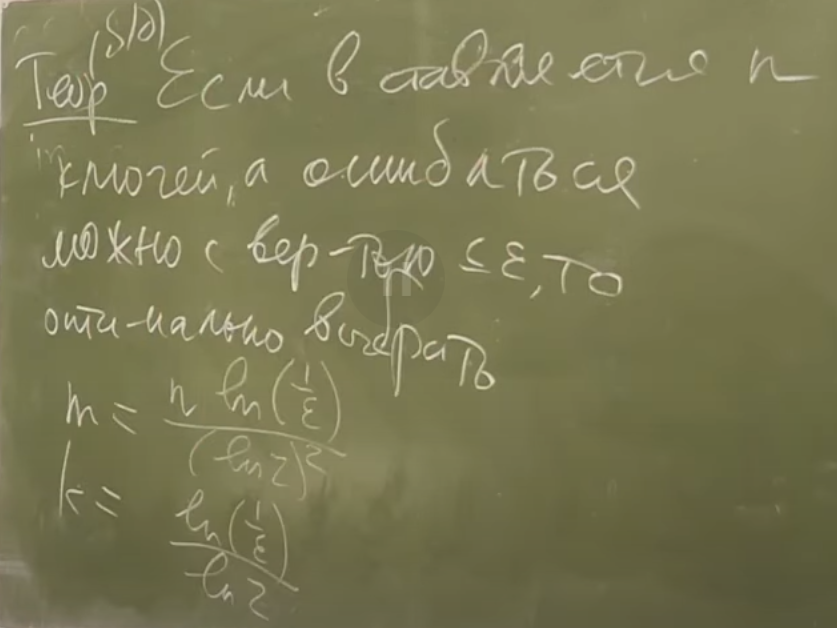 Теор (б/д) Если вставляется n
ключей, а ошибаться
можно с вер-тью ≤ ε, то
оптимально выбрать
m = n ln(1/ε) / (ln 2)²
k = ln(1/ε) / ln 2